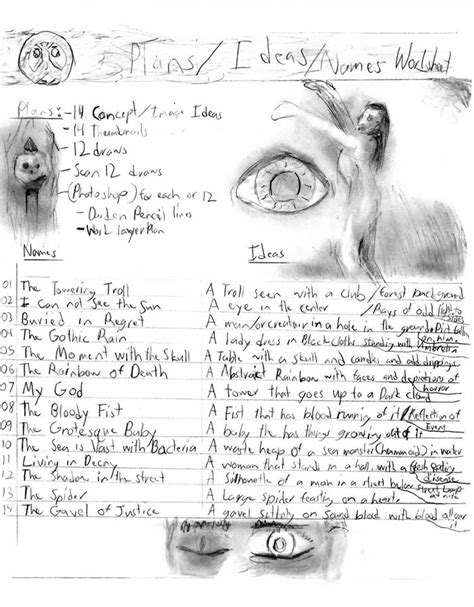 Plans/Ideas/Names Worksheet
Plans: - 14 Concept/Image Ideas
- 14 Thumbnails
- 12 draws
- Scan 12 draws
- (Photoshop) for each or 12
- Darken Pencil lines
- Work layer Plan
Names Ideas
01 The Towering Troll A Troll seen with a club/forest background
02 I can not see the Sun A eye in the center/Rays of odd light
03 Buried in Regret A man/or creator in a hole in the ground Dirt falls on him
04 The Gothic Rain A lady dress in Black Cloths standing with umbrella
05 The Moment with the Skull A Table with a skull and candles and odd drippings
06 The Rainbow of Death A Abstract Rainbow with faces and depictions of horror
07 My God A tower that goes up to a Dark cloud
08 The Bloody Fist A Fist that has blood running of it/Reflection of Event
09 The Grotesque Baby A baby tha has things growing out of it
10 The Sea is Vast with Bacteria A waste heap of a sea monster in water
11 Living in Decay A woman that stands in a hall with a flesh eating disease
12 The Shadow in the street A Silhouette of a man in a street below street lamp at nite
13 The Spider A Large spider feasting on a hearts
14 The Gavel of Justice A gavel sitting on Sound blood with blood all over it